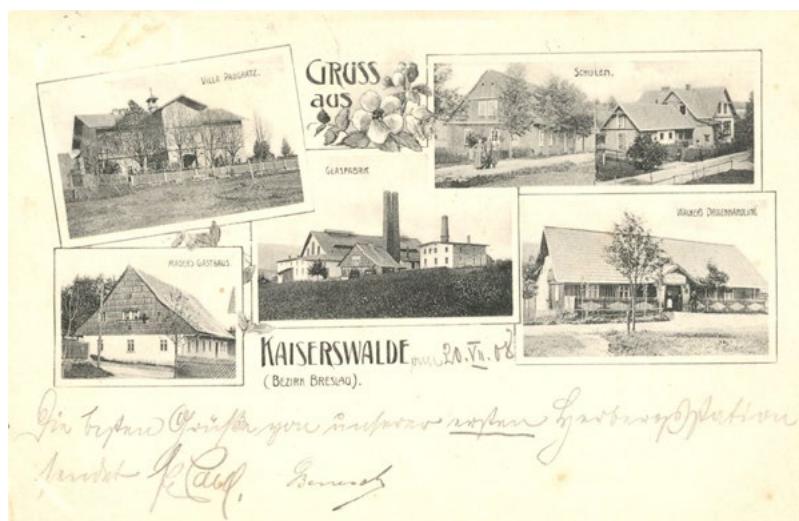 VILLA PANGRATZ.
GRUSS
aus
SCHULEN.
GLASFABRIK
WALKERS DROGENHANDLUNG
MADERS GASTHAUS.
KAISERSWALDE am 20. VII. 08
(BEZIRK BRESLAU).
Die besten Grüße von unserer ersten Herbergsstation
sendet